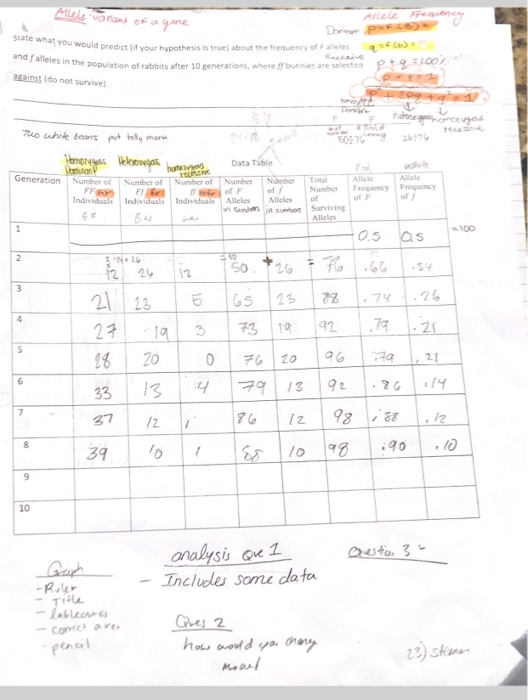 Allele variant of a gene
Allele Frequency
Dominant p=f(B)=
State what you would predict (if your hypothesis is true) about the frequency of F alleles
q=f(b)=
Recessive
and f alleles in the population of rabbits after 10 generations, where ff bunnies are selected
p+q=100%
against (do not survive).
p+q=1
p²+2pq+q²=1
Two white beans put tally mark
50÷76
26÷76
Homozygous Dominant
Heterozygous
homozygous recessive
Data Table
Generation
Number of FF Individuals
Number of Ff Individuals
Number of ff Individuals
Number of F Alleles in survivors
Number of f Alleles in survivors
Total Number of Surviving Alleles
Allele Frequency of F
Allele Frequency of f
1 0.5 0.5 =100
2 12 26 12 50 + 26 = 76 .66 .34
3 21 23 5 65 23 88 .74 .26
4 27 19 3 73 19 92 .79 .21
5 28 20 0 76 20 96 .79 .21
6 33 13 4 79 13 92 .86 .14
7 37 12 1 86 12 98 .88 .12
8 39 10 1 88 10 98 .90 .10
9
10
analysis Que 1
Question 3 -
Graph
- Includes some data
- Ruler
- Title
- correct axes
Ques 2
- pencil
how would you change
23)